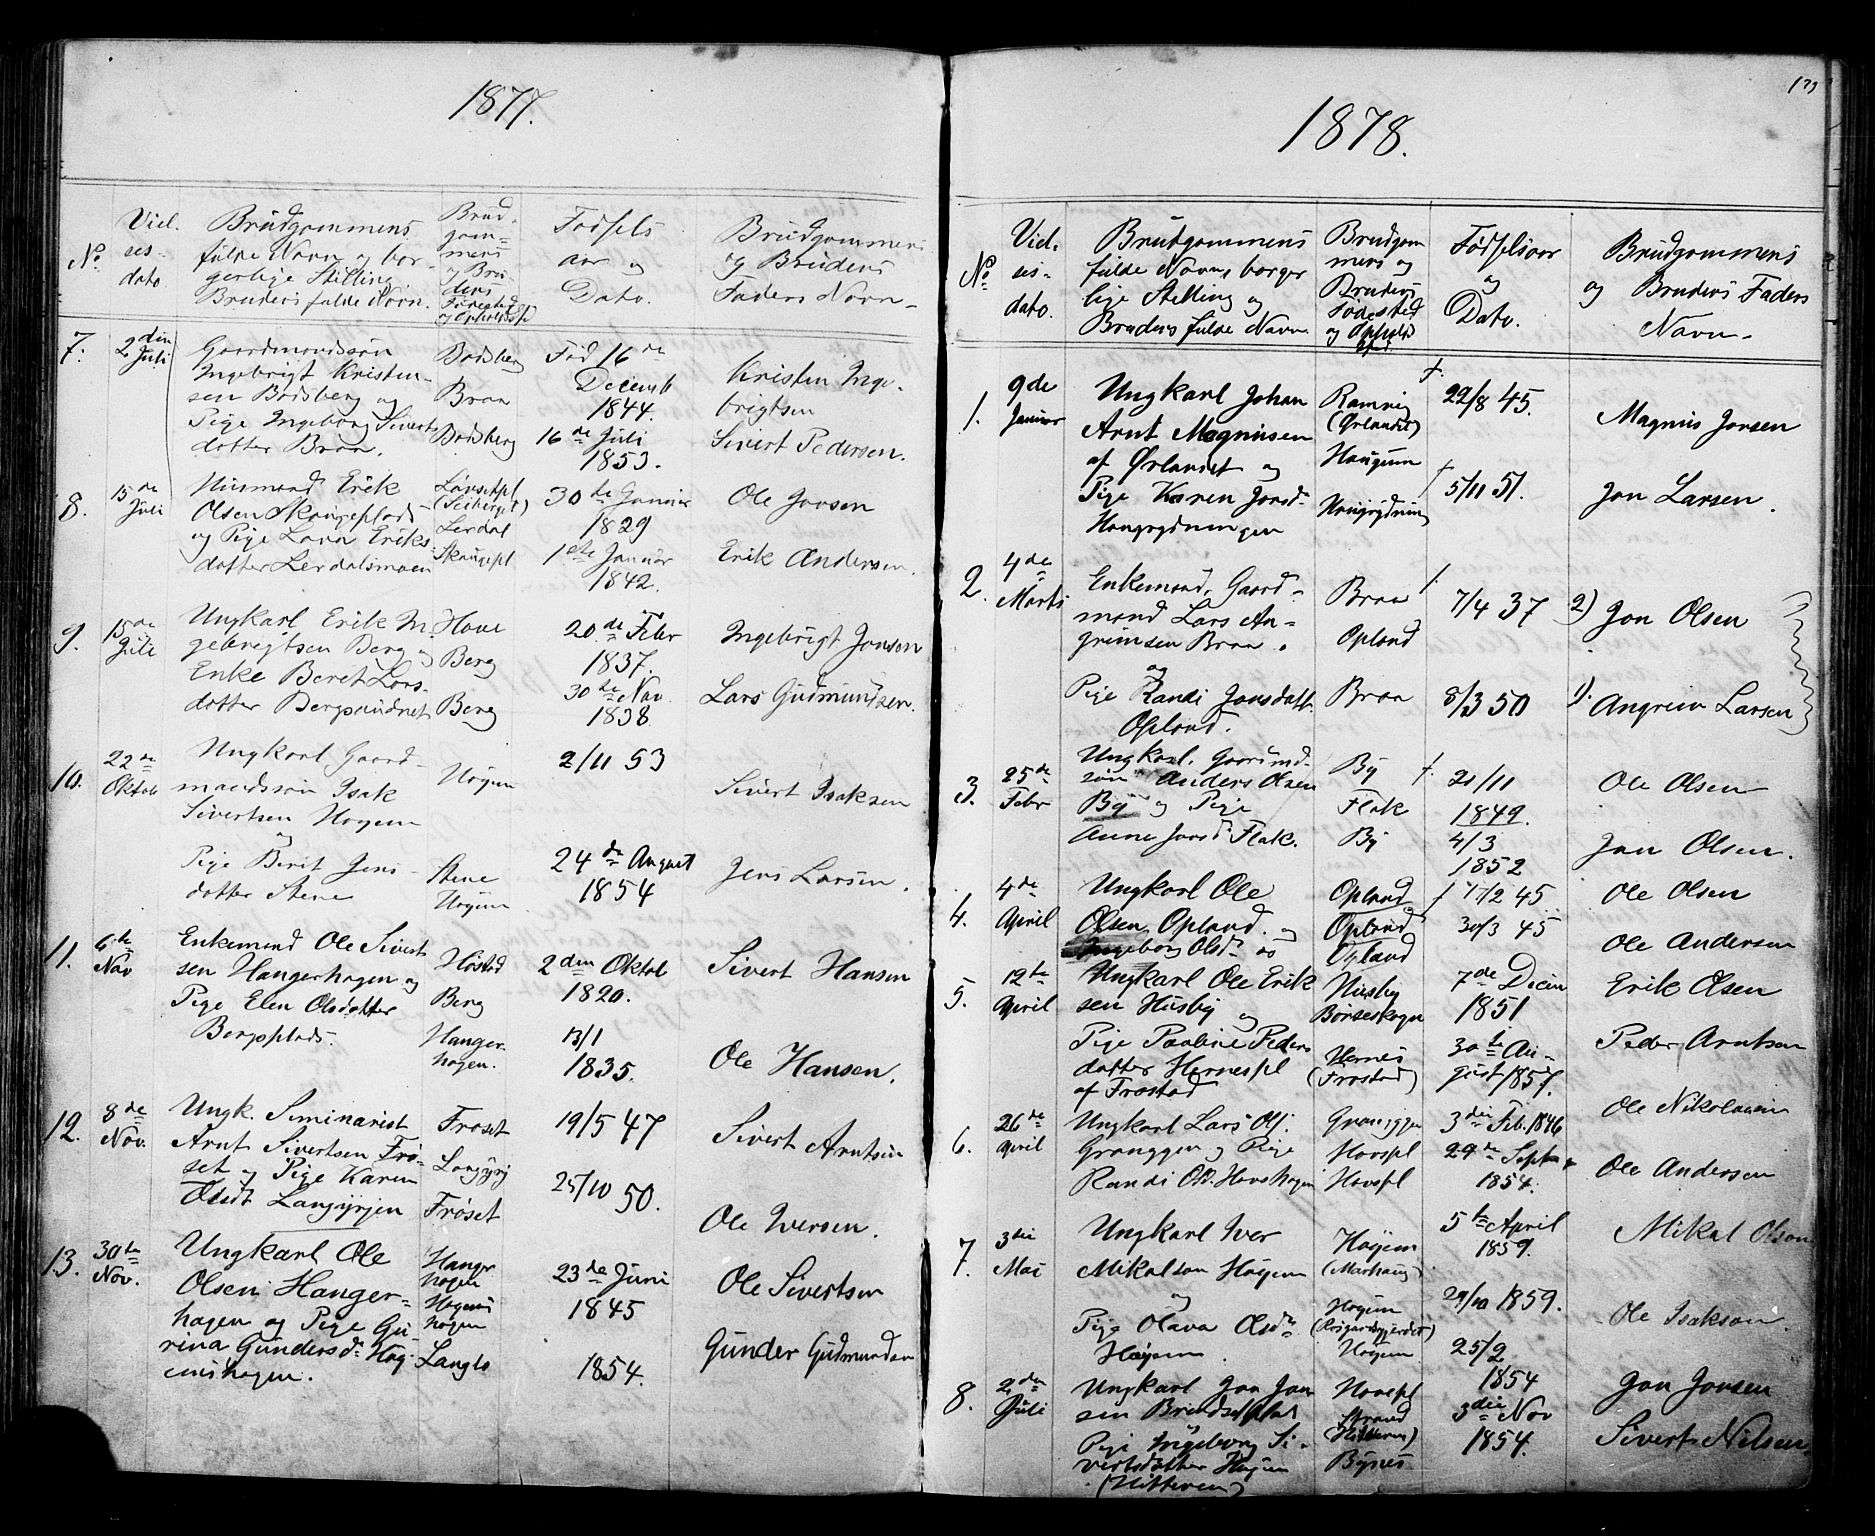 1877.
No.
Viel.
ses-
dato
Brudgommens
fulde Navn og bor-
gerlige Stilling.
Brudens fulde Navn.
Brud-
gom-
mens
og Bru
dens
Fødested
og Opholdssted
Fødsels
aar og
Dato.
Brudgommens
og Brudens
Faders Navn-
7.
2den
Juli
Gaardmandssøn
Ingebrigt Kristen-
sen Bodsberg og
Pige Ingeborg Siverts
datter Braa.
Bodsberg
Braa
Bodsberg
Fød 16de
Decemb
1844.
16de Juli
1853.
Kristen Inge-
brigtsen
Sivert Pedersen.
8.
15de
Juli
Husmand Erik
Olsen Skaugeplads
og Pige Lava Eriks
datter Lerdalsmoen
Lerdal
Skaugepl
30te Januar
1829
1ste Januar
1842.
Ole Joensen
Erik Andersen.
9.
15de
Juli
Ungkarl Erik In
gebrigtsen Berg og
Enke Beret Lars-
datter Bergsundnet
Hove
Berg
Berg
20de Febr
1837.
30te Nov
1838.
Ingebrigt Jonsen
Lars Gudmundsen.
10.
22de
Oktob
Ungkarl Gaard-
mandssøn Isak
Sivertsen Hogem
og
Pige Berit Jens-
datter Stene
Hogem
Stene
Hogem
2/11 53
24de August
1854
Sivert Isaksen
Jens Larsen.
11.
6te
Nov
Enkemand Ole Sivert
sen Hangerhagen og
Pige Elen Olsdatter
Bergsplads.
Høstad
Berg
Hanger-
hagen.
2den Oktob
1820.
13/1
1835.
Sivert Hansen
Ole Hansen.
12.
8de
Nov.
Ungk. Seminarist
Arnt Sivertsen Frø-
set og Pige Karen
Olsdt Langørjen
Frøset
Langørj
Frøset
19/5 47
25/10 50.
Sivert Arntsen
Ole Iversen.
13.
30te
Nov.
Ungkarl Ole
Olsen Hanger-
hagen og Pige Gu
rina Gundersd. Hog
emshagen.
Hanger
hagen
Hogems
hagen
Langlo
23de Juni
1845
1854.
Ole Sivertsen
Gunder Gudmundsen
1878.
No
Viel.
ses-
dato.
Brudgommens
fulde Navn, borger
lige Stilling og
Brudens fulde Navn
Brudgom
mens og
Brudens
Fødested
og Opholds
sted
Fødselsaar
og
Dato.
Brudgommens
og Brudens Faders
Navn-
1.
9de
Januar
Ungkarl Johan
Arnt Magnusen
af Ørlandet og
Pige Karen Jonsd.
Haugrydnin
gen
(Ørlandet)
Haugum
Haugrydnin
22/8 45.
5/11 51.
Magnus Jonsen
Jon Larsen.
2.
4de
Marts
Enkemand, Gaard-
mand Lars An-
grimsen Braa.
og
Pige Randi Jonsdatt.
Opland.
Braa
Opland
Braa
7/4 37
8/3 50
2) Jon Olsen
1). Angrim Larsen
3.
25de
Febr
Ungkarl. Gaardmd-
søn Anders Olsen
By og Pige
Anne Jonsd. Flak.
By
Flak
By
21/11
1849.
4/3
1852
Ole Olsen
Jon Olsen.
4.
4de
April
Ungkarl Ole
Olsen Opland. og
Ingeborg Olsd.
Opland
Opland
Opland
17/2 45
30/3 45
Ole Olsen
Ole Andersen
5.
12te
April
Ungkarl Ole Erik
sen Husby og
Pige Pauline Peders
datter Hernespl
af Frostad
Husby
Børseskogn
Hernes
(Frostad)
7de Decem
1851
30te Au-
gust 1857.
Erik Olsen
Peder Arntsen
6.
26de
April
Ungkarl Lars Ols.
Granggen og Pige
Randi Olsd. Hovshagen
Hovspl
Hovspl
3die Feb. 1846
29de Septbr
1854.
Ole Nikolaisen
Ole Andersen
7.
3die
Mai
Ungkarl Iver
Mikalsen Høgem
og
Pige Olava Olsdtr
Høgem.
Høgem
Hogem
Hogem
5te April
1859.
29/10 1859.
Mikal Olsen
Ole Isaksen.
8.
2den
Juli
Ungkarl Jon Jon
sen Bredsedplad
Pige Ingeborg Si-
vertsdatter Hogem
(Hitteren)
Hovspl
Strand
(Hitteren)
Bynes
25/2
1854
3die Nov
1854.
Jon Jonsen
Sivert Nilsen